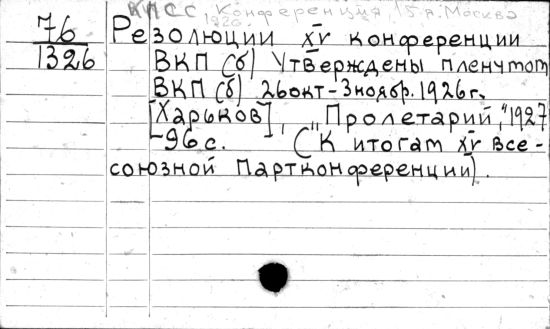 КПСС Конференция, 15-я. Москва
1926.
76
1326
Резолюции XV конференции
ВКП (б) Утверждены пленумом
ВКП (б) 26 окт - 3 ноябр. 1926 г.
[Харьков], "Пролетарий," 1927
-96 с. (К итогам XV Все-
союзной Партконференции).